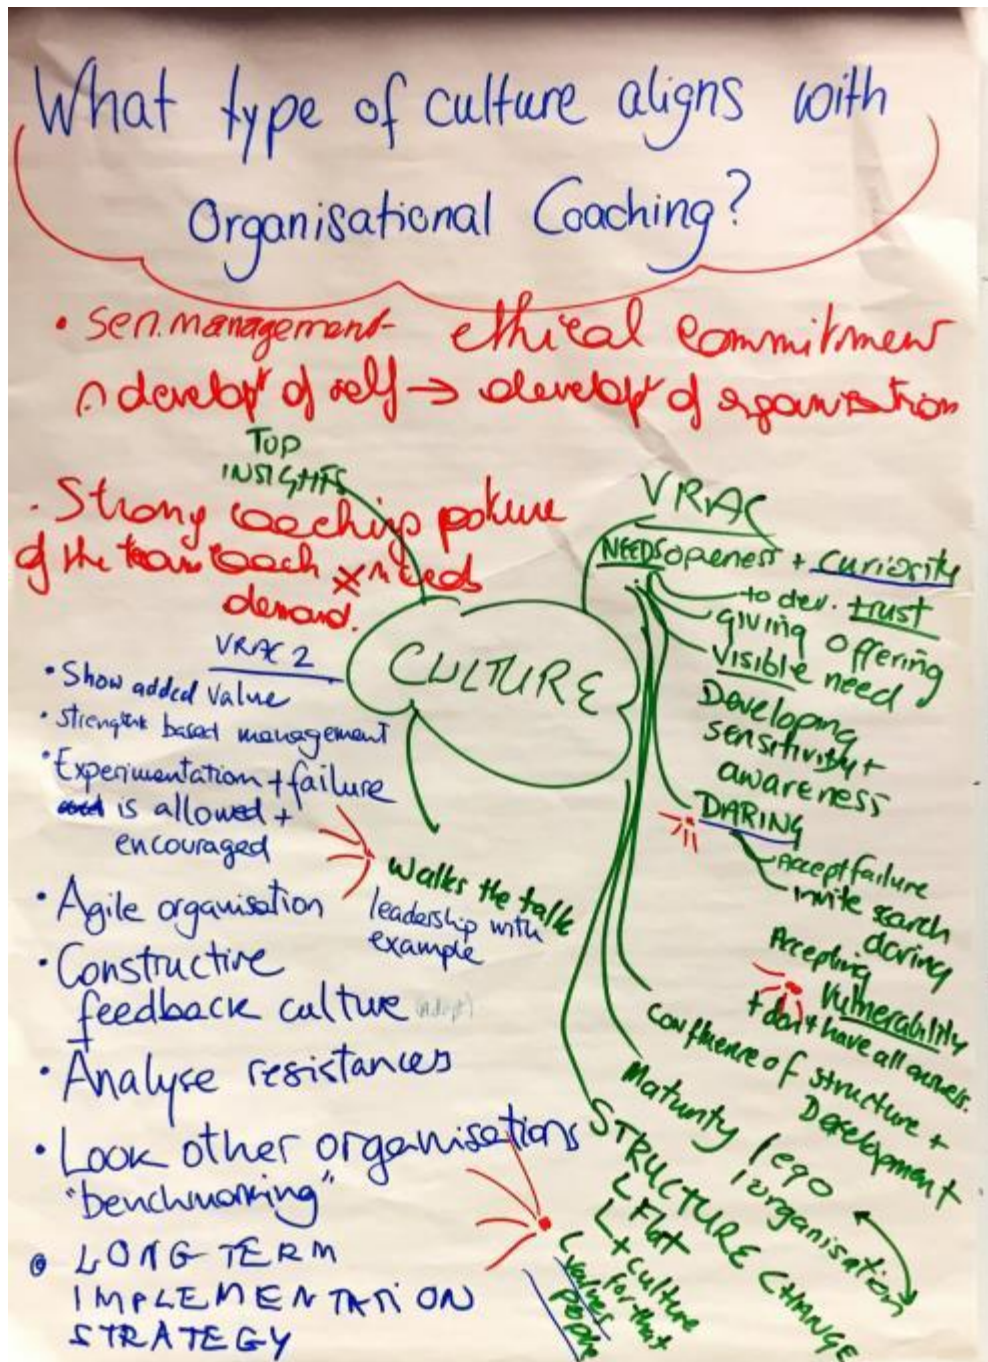 What type of culture aligns with
Organisational Coaching?
• sen. management- ethical commitment
develop't of self → develop't of organisation
TOP
INSIGHTS
. Strong coaching posture
of the team coach needs
demand.
VRAC 2
• Show added value
• strengths based management
• Experimentation + failure
is allowed +
encouraged
• Agile organisation
• Constructive
feedback culture (adapt)
+
• Analyse resistances
• Look other organisations
"benchmarking"
• LONG TERM
IMPLEMENTATION
STRATEGY
CULTURE
walks the talk
leadership with
example
VRAC
NEEDS openess + curiosity
to dev. trust
giving offering
visible need
Developing
sensitivity +
awareness
DARING
Accept failure
invite search
daring
Accepting
Vulnerability
+ don't have all answers.
confluence of structure +
Development
Maturity / ego
/ organisation
STRUCTURE CHANGE
Flat
+ culture
for that
values
people